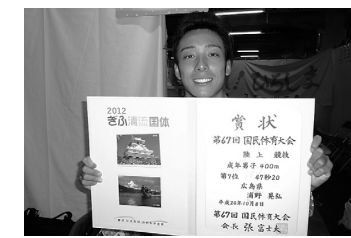 2012
ぎふ清流国体
賞状
第67回 国民体育大会
陸上 競技
成年男子 400m
第7位 47秒20
広島県
浦野 晃弘
平成24年10月8日
第67回 国民体育大会
会長 張 富士夫
ひろしま